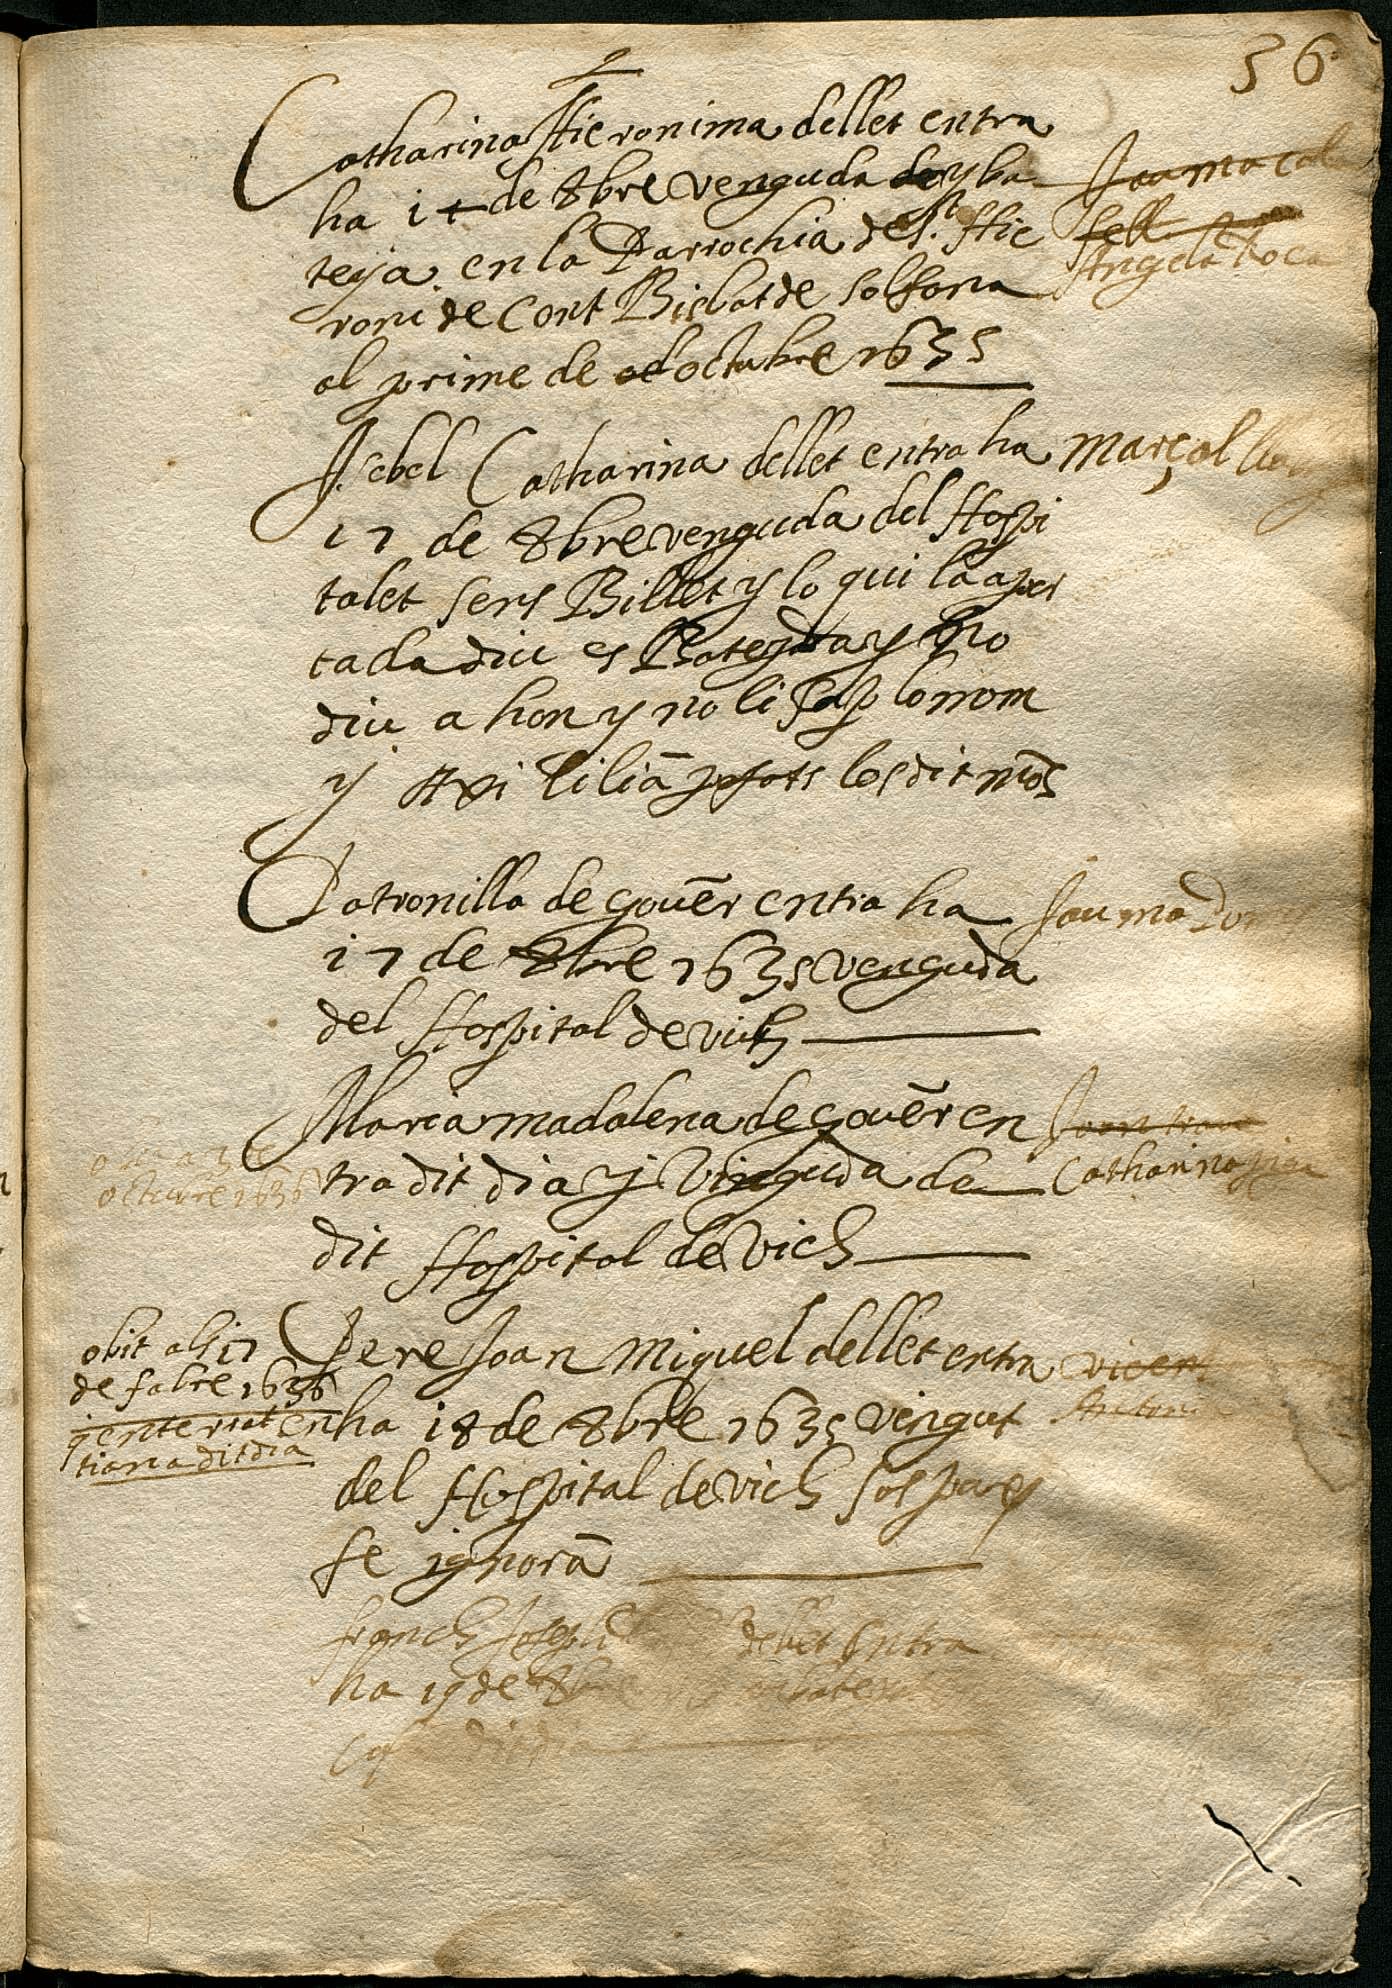 36
Catharina Hieronima dellet entra
ha 14 de 8bre venguda de y ba
teya. en la Parrochia de St. Hie
roni de Cont Bisbat de Solsona
al prime de octubre 1635
Jauma
fell
Angela Roca
Isebel Catharina dellet entra ha
17 de 8bre venguda del Hospi
talet sens Billet y lo qui la a por
tada diu es Batejada y no
diu a hon y no li sap lo nom
y Axi li liã posats los dit nõs
Març al
Patronilla de govẽr entra ha
17 de 8bre 1635 venguda
del Hospital de vich
Jauma
Maria madalena de govẽr en
tra dit dia y Vinguda de
dit Hospital de Vich
Joan
Catharina
octubre 1636
Pere Joan Miquel dellet entra
ha 18 de 8bre 1635 vingut
del Hospital de vich sos pares
se ignorã
obit als 17
de fabre 1636
tiana dit dia
Antonia
franch Joseph dellet Entra
ha 19 de 8bre
dit dia